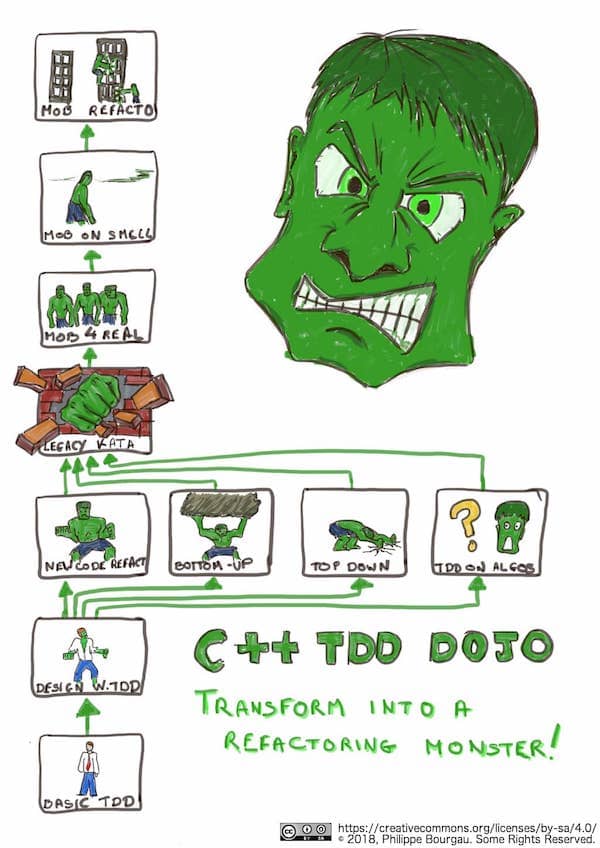 MOB REFACTO
MOB ON SMELL
MOB 4 REAL
LEGACY KATA
NEW CODE REFACT
BOTTOM-UP
TOP DOWN
?
TDD ON ALGOS
DESIGN W.TDD
C++ TDD DOJO
TRANSFORM INTO A
REFACTORING MONSTER!
BASIC TDD
https://creativecommons.org/licenses/by-sa/4.0/
© 2018, Philippe Bourgau. Some Rights Reserved.